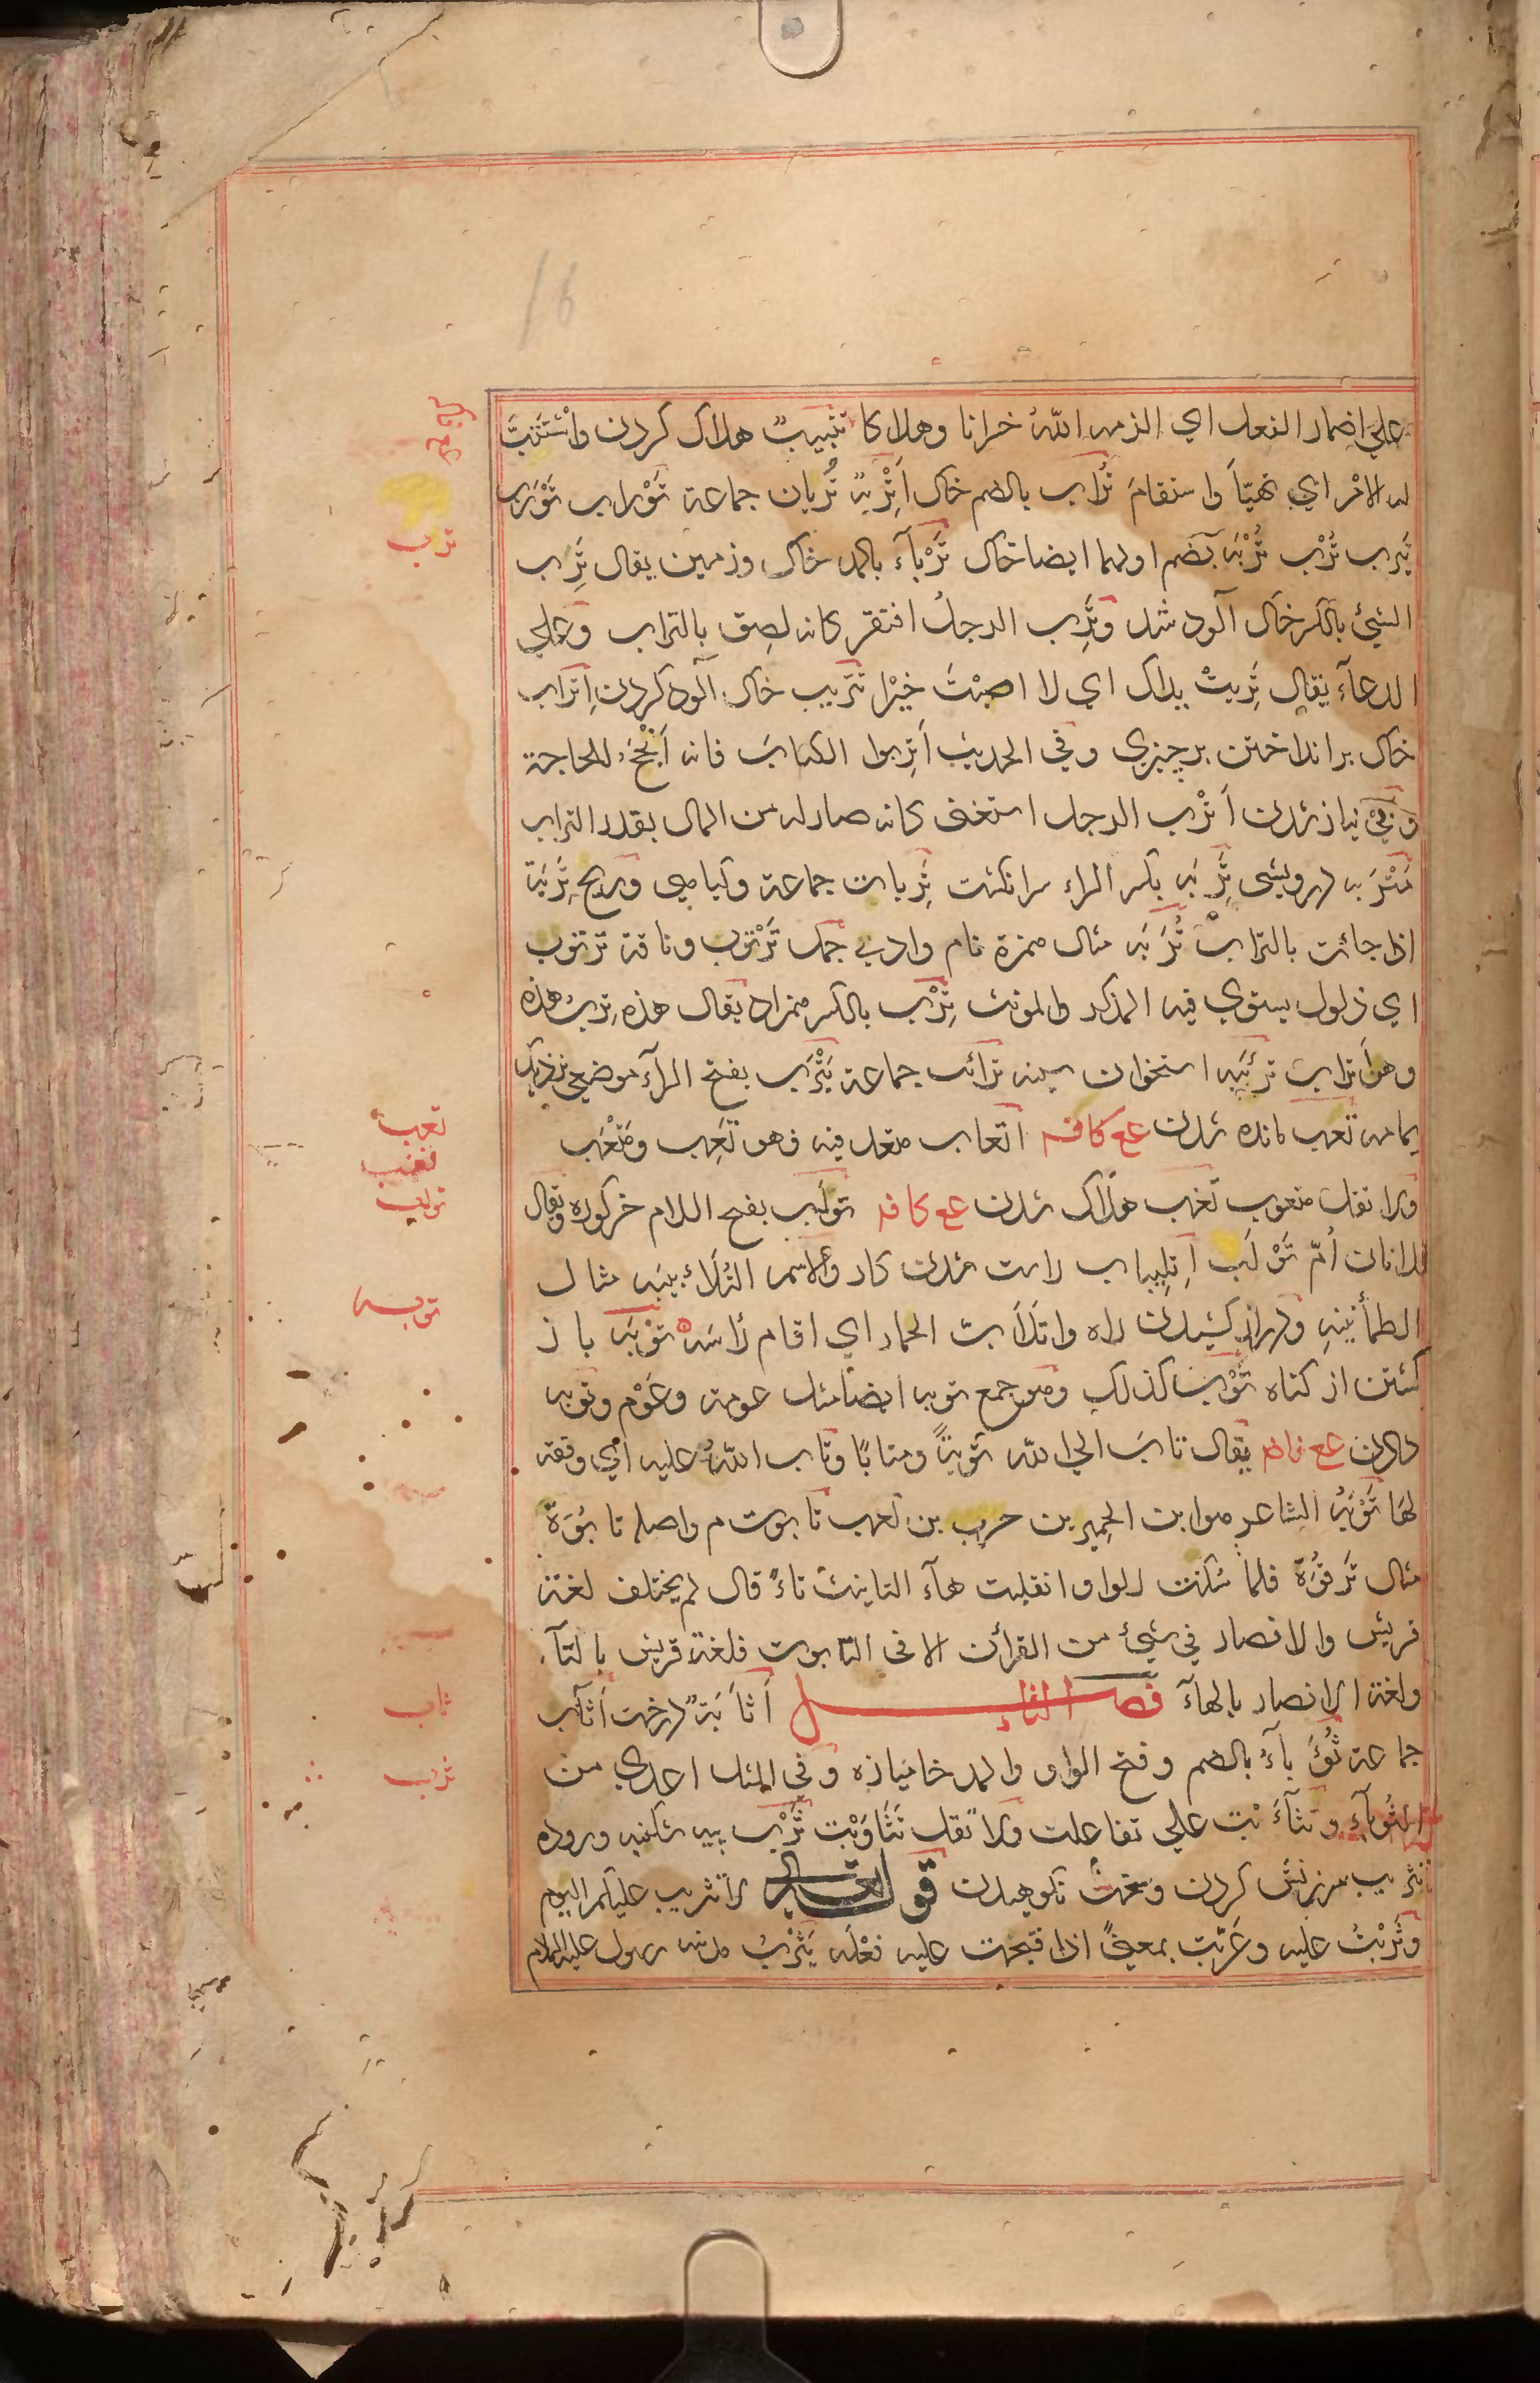 علي اضمار الفعل اي الزمه اللّٰهُ خرانا وهلاكا تتبيبٌ هلاک کردن واسْتَتَبَّ
له الامْر اي تهيّأَ واستقامَ تُراب بالضم خاک اَتْرِبَةٌ تُربان جماعة تَوْراب تَوْرَب
تَيرب تُرْب تُرْبَه بضم اولهما ايضا خاک تَرْبآء بالمد خاک وزمين يقال تَرِب
الشيئ بالکسر خاک آلود شد وتَرِب الرجلُ افتقر کانه لصِق بالتراب وعلي
الدعآء يقال تَرِبتْ يداک اي لا اصبْتَ خيْرا تتريب خاک آلود کردن اِتراب
خاک بر انداختن بر چيزي وفي الحديث اَترِبوا الکتابَ فانه اَنْجَحُ للحاجة
و بي نياز شدن اَتْرب الرجل استغني کانه صار له من المال بقدر التراب
مَتْرَبه درويشي تَرِبَه بکسر الراء سر انکشت تَرِبات جماعة وکياهي وريح تَرِبَة
اذا جائت بالتراب تُرَبَه مثال همزة نام وادي جمل تَرْتوب وناقة ترتوب
اي ذلول يستوي فيه المذکر والمونث تِرْب بالکسر همزاد يقال هذه تِربُ هذه
وهن اَتراب تريبَه استخوان سينه ترائب جماعة يَتْرَب بفتح الرآء موضعي نزديک
يمامه تعب مانده شدن عع کافه اتعاب متعد فيه فهو تَعِب ومُتْعَب
ولا تقل متعوب تغب هلاک شدن عع کافه تولَب بفتح اللام خرکوره ويقال
للاتان اُمّ تَوْلَب اِتلِيباب راست شدن کار والاسم التُلَاْبيبَه مثال
الطمأنينه ودراز کشيدن راه واتلَاَبّ الحمار اي اقام رأسَه تَوْبَه باز
کشتن از کناه تَوْب کذلک وهو جمع توبه ايضا مثل عومة وعَوْم وتوبه
دادن عع يقال تابَ الي اللّٰه تَوبةً ومتابًا وتاب اللّٰهُ عليه اي وفقه
لها تَوْبَةُ الشاعر هو ابن الحمير بن حرب بن کعب تابوت م واصله تابُوَة
مثال تَرقُوَة فلما سکنت الواو انقلبت هآء التانيث تاءً قال لم يختلف لغة
قريش والانصار في شيئ من القرآن الا في التابوت فلغة قريش بالتآء
ولغة الانصار بالهآء فصل الثاء اَثاَبَةٌ درخت اَثأب
جماعة ثُؤَباءُ بالضم وفتح الواو والمد خاميازه وفي المثل اعدي من
الثُوَبآء وتثآءَبْت علي تفاعلت ولا تقل تَثَاوَبْت ثَرْب پيه شکنبه وروده
تثريب سرزنش کردن وسخت نکوهيدن قوله تعالي لا تثريب عليکم اليوم
وثَرّبْتُ عليه وعَرّبت بمعنيً اذا قبحت عليه فعْلَه يَثْرِبُ مدينه رسول عليه السلام
ترب
تعب
تغب
تولب
توبه
ثاب
ثرب
16